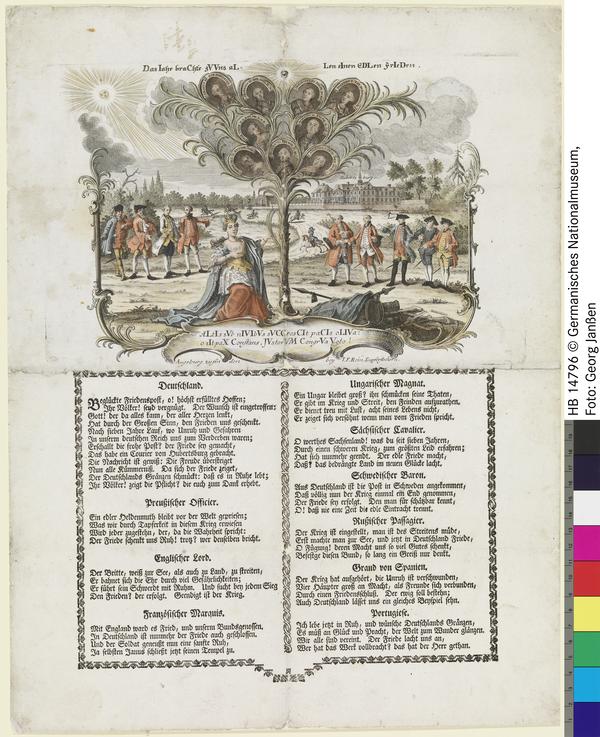 Das Jahr braChte VVns aL-
Len eInen EDLen FrIeDen.
Augspurg zu finden
Deutschland.
Beglückte Friedenspost, o! höchst erfülltes Hoffen;
Ihr Völker! seyd vergnügt. Der Wunsch ist eingetroffen:
Gott! der da alles kann, der aller Herzen lenkt,
Hat durch der Großen Sinn, den Frieden uns geschenkt.
Nach sieben Jahre Lauf, wo Unruh und Gefahren
In unserm deutschen Reich uns zum Verderben waren;
Erschallt die frohe Post? der Friede sey gemacht,
Das habe ein Courier von Hubertsburg gebracht.
Die Nachricht ist gewiß: Die Freude übersteiget
Nun alle Kümmerniß. Da sich der Friede zeiget,
Der Deutschlands Gränzen schmückt: daß es in Ruhe lebt;
Ihr Völker! zeigt die Pflicht? die euch zum Dank erhebt.
Preußischer Officier.
Ein edler Heldenmuth bleibt vor der Welt gepriesen;
Was wir durch Tapferkeit in diesem Krieg erwiesen
Wird jeder zugestehn, der, da die Wahrheit spricht:
Der Friede schenkt uns Ruh! trotz! wer denselben bricht.
Englischer Lord.
Der Britte, weiß zur See, als auch zu Land, zu streiten,
Er bahnet sich die Ehr durch viel Gefährlichkeiten;
Er führt sein Schwerd mit Ruhm. Und sucht bey jedem Sieg
Den Frieden? der erfolgt. Geendigt ist der Krieg.
Französischer Marquis.
Mit England ward es Fried, und unsern Bundsgenossen,
In Deutschland ist nunmehr der Friede auch geschlossen.
Und der Soldat geneußt nun eine sanfte Ruh;
Ja selbsten Janus schließt jetzt seinen Tempel zu.
Ungarischer Magnat.
Ein Ungar bleibet groß? ihn schmücken seine Thaten,
Er gibt im Krieg und Streit, den Feinden aufzurathen.
Er dienet treu mit Lust, acht seines Lebens nicht,
Er zeiget sich versöhnt wenn man vom Frieden spricht.
Sächsischer Cavalier.
O werthes Sachsenland! was du seit sieben Jahren,
Durch einen schweren Krieg, zum größten Leid erfahren;
Hat sich nunmehr geendt. Der edle Friede macht,
Daß? das bedrängte Land im neuen Glücke lacht.
Schwedischer Baron.
Aus Deutschland ist die Post in Schweden angekommen,
Daß völlig nun der Krieg einmal ein End genommen,
Der Friede sey erfolgt. Den man für schätzbar kennt,
O! daß nie eine Zeit die edle Eintracht trennt.
Rußischer Passagier.
Der Krieg ist eingestellt, man ist des Streitens müde,
Erst machte man zur See, und jetzt in Deutschland Friede,
O Fügung! deren Macht uns so viel Gutes schenkt,
Befestge diesen Bund, so lang ein Geist nur denkt.
Grand von Spanien.
Der Krieg hat aufgehört, die Unruh ist verschwunden,
Vier Häupter groß an Macht, als Freunde sich verbunden,
Durch einen Friedensschluß. Der ewig soll bestehn;
Auch Deutschland lässet uns ein gleiches Beyspiel sehn.
Portugiese.
Ich lebe jetzt in Ruh, und wünsche Deutschlands Gränzen,
Es müß an Glück und Pracht, der Welt zum Wunder glänzen.
Wir alle sind vereint. Der Friede lacht uns an;
Wer hat das Werk vollbracht? das hat der Herr gethan.
HB 14796 © Germanisches Nationalmuseum,
Foto: Georg Janßen